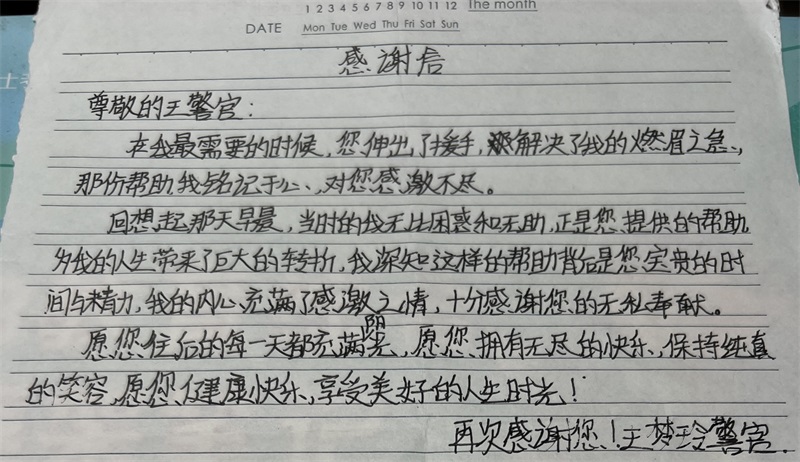 1 2 3 4 5 6 7 8 9 10 11 12 The month
DATE Mon Tue Wed Thu Fri Sat Sun
感谢信
尊敬的王警官：
在我最需要的时候，您伸出了援手，解决了我的燃眉之急，
那份帮助我铭记于心，对您感激不尽。
回想起那天早晨，当时的我无比困惑和无助，正是您提供的帮助
为我的人生带来了巨大的转折，我深知这样的帮助背后是您宝贵的时
间与精力，我的内心充满了感激之情，十分感谢您的无私奉献。
愿您往后的每一天都充满阳光，愿您拥有无尽的快乐，保持纯真
的笑容，愿您健康快乐，享受美好的人生时光！
再次感谢您！王梦玲警官.